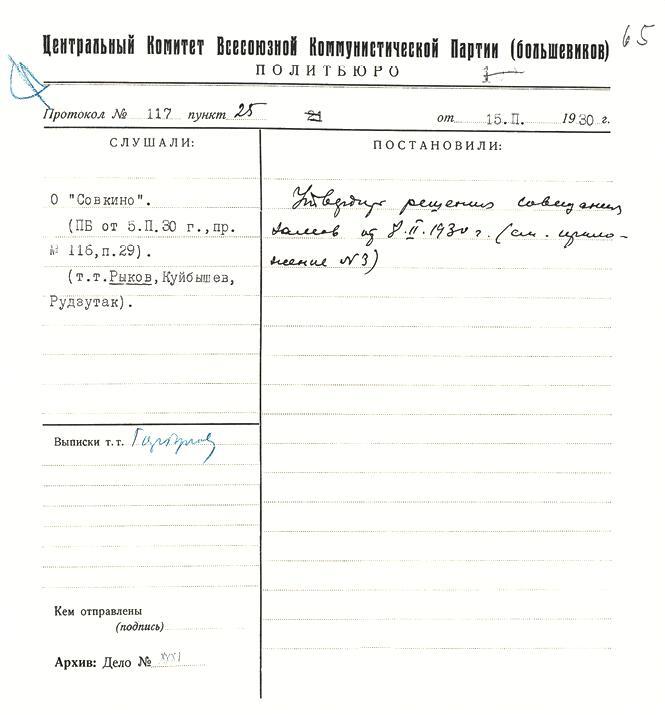 65
Центральный Комитет Всесоюзной Коммунистической Партии (большевиков)
ПОЛИТБЮРО
Протокол № 117 пункт 25 21 от 15.II. 1930 г.
СЛУШАЛИ:
О "Совкино".
(ПБ от 5.II.30 г.,пр.
№ 116,п.29).
(т.т.Рыков,Куйбышев,
Рудзутак).
Выписки т.т.
Кем отправлены
(подпись)
Архив: Дело №
ПОСТАНОВИЛИ:
Утвердить решения совещания
замов от 8.II.1930 г. (см. прило-
жение №3)